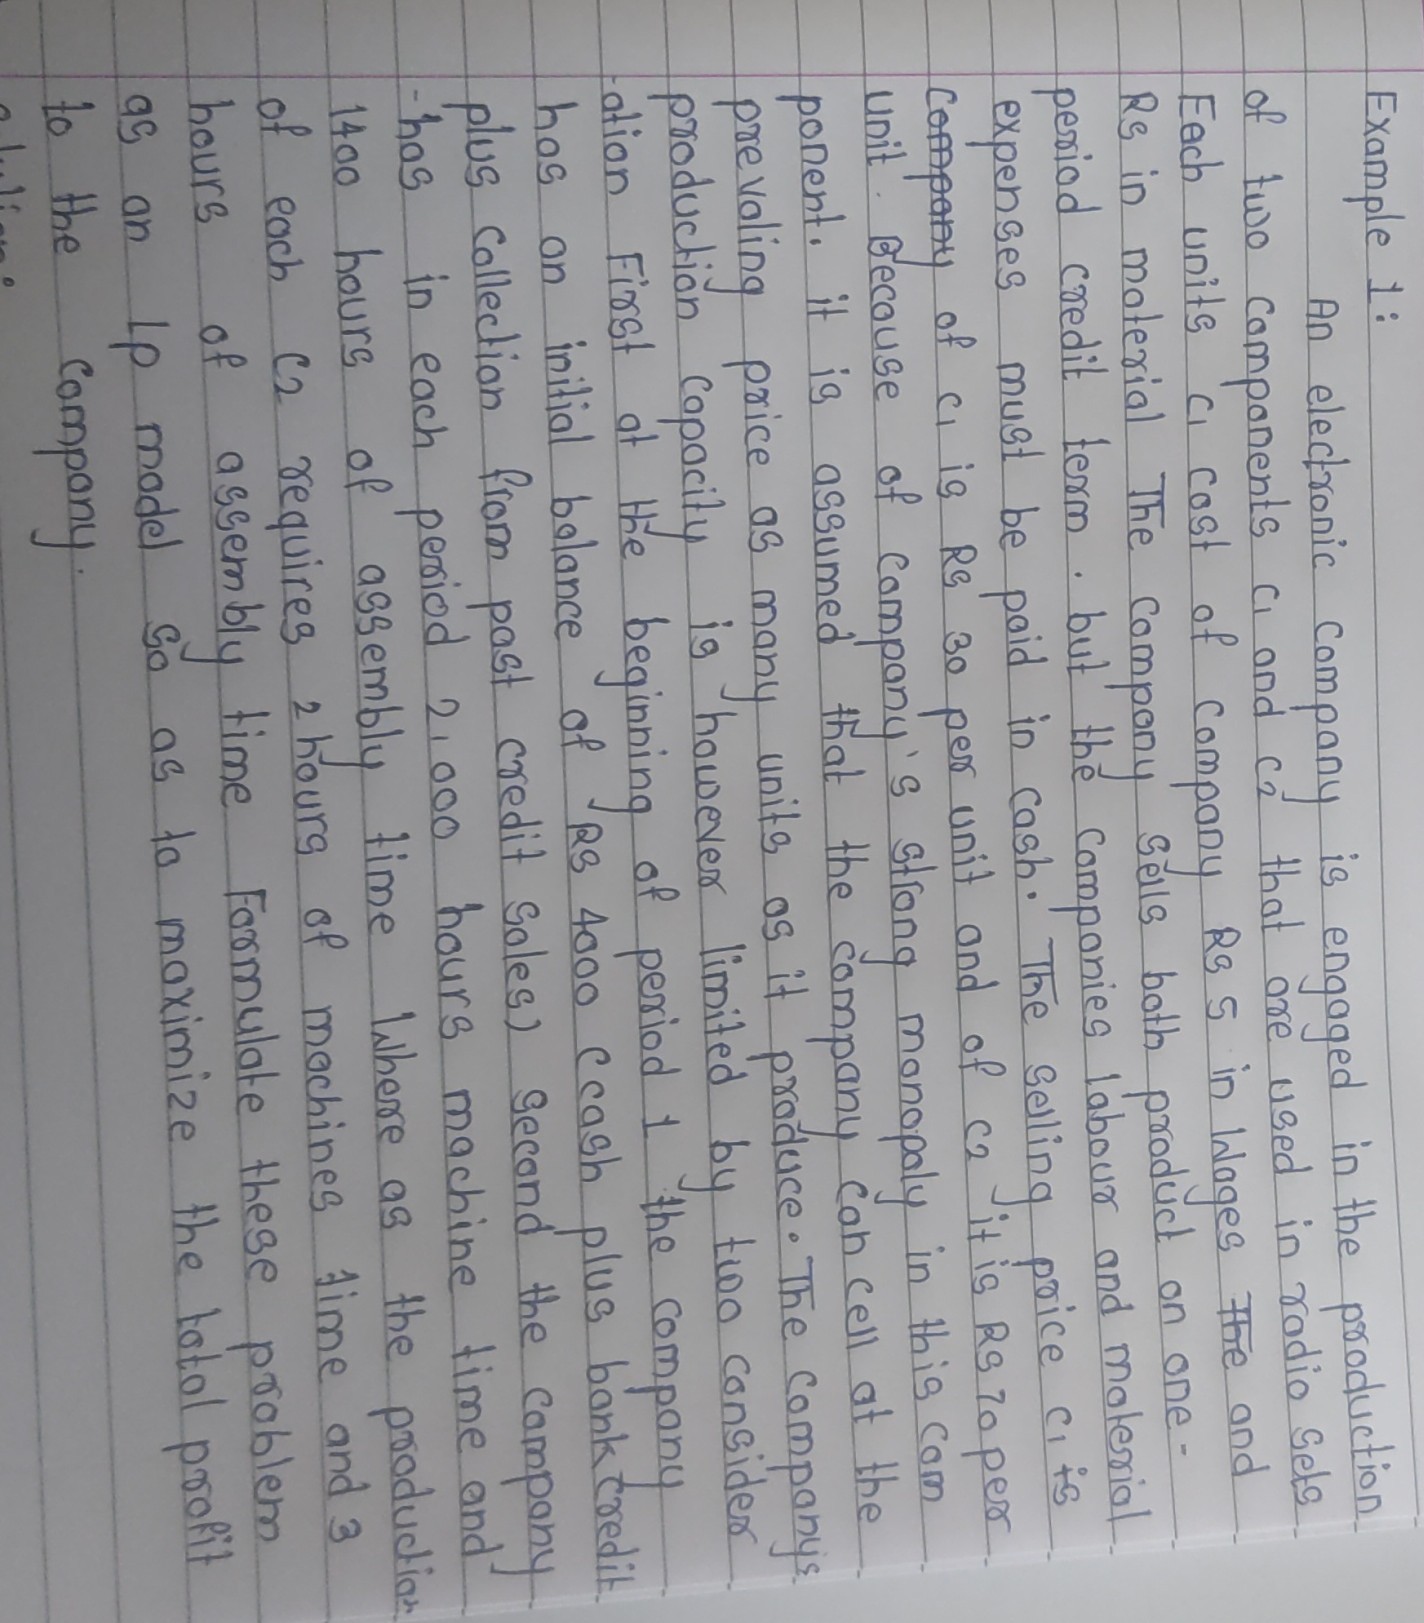 Example 1:
An electronic company is engaged in the production
of two components C1 and C2 that are used in radio sets
Each units C1 cost of company Rs 5 in wages The and
Rs in material The company sells both product on one-
period credit term. but the companies labour and material
expenses must be paid in cash. The selling price C1 is
Company of C1 is Rs 30 per unit and of C2 it is Rs 70 per
unit. Because of company's strong monopoly in this com
ponent. it is assumed that the company can cell at the
prevaling price as many units as it produce. The companys
production capacity is however limited by two consider
-ation First at the beginning of period 1 the company
has an initial balance of Rs 4000 (cash plus bank credit
plus collection from past credit sales) second the company
-has in each period 2,000 hours machine time and
1400 hours of assembly time Where as the production
of each C2 requires 2 hours of machines time and 3
hours of assembly time Formulate these problem
as an Lp model so as to maximize the total profit
to the company.